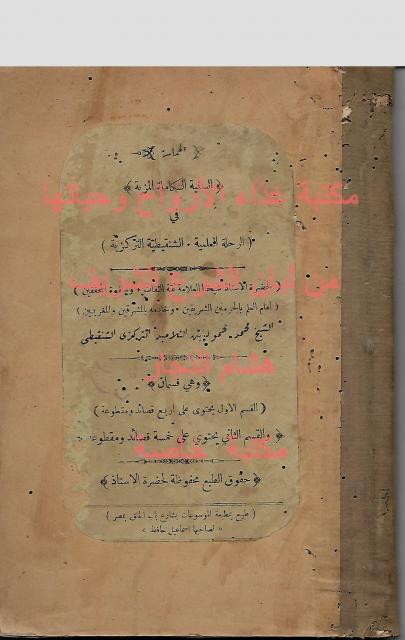 الحماسة
﴿ السنية الكاملة المزية ﴾
في
( الرحلة العلمية الشنقيطية التركزية )
( لحضرة الاستاذ العلامة ثقة الثقات المحققين )
( امام العلم بالحرمين الشريفين وخادمه بالمشرقين والمغربين )
الشيخ محمد محمود بن التلاميد التركزي الشنقيطي
﴿ وهي قسمان ﴾
( القسم الاول يحتوي على اربع قصائد ومقطوعة )
﴿ والقسم الثاني يحتوي على خمسة قصائد ومقطوعة ﴾
﴿ حقوق الطبع محفوظة لحضرة الاستاذ ﴾
( طبع بمطبعة الموسوعات بشارع باب الخلق بمصر )
« لصاحبها اسماعيل حافظ »
مكتبة غذاء الأرواح وحياتها
من
الشريف
هشام النجار
مكتبة خاصة